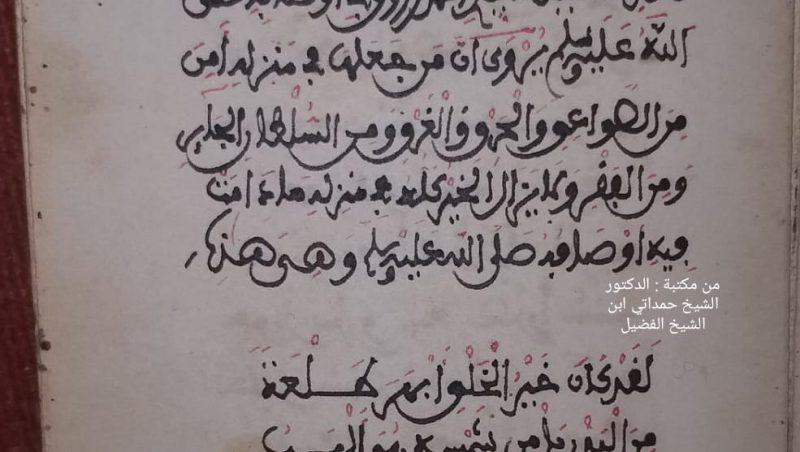 الله عليه وسلم يروى أن من جعلها في منزله أمن
من الصواعق والحرق والغرق ومن السلطان الجاير
ومن الفقر ولا يزال الخير كله في منزله ما دامت
فيه أوصافه صلى الله عليه وسلم وهي هذه
لقد كان خير الخلق أبهر طلعة
من البدر بل من شمسه
من مكتبة : الدكتور
الشيخ حمداتي ابن
الشيخ الفضيل